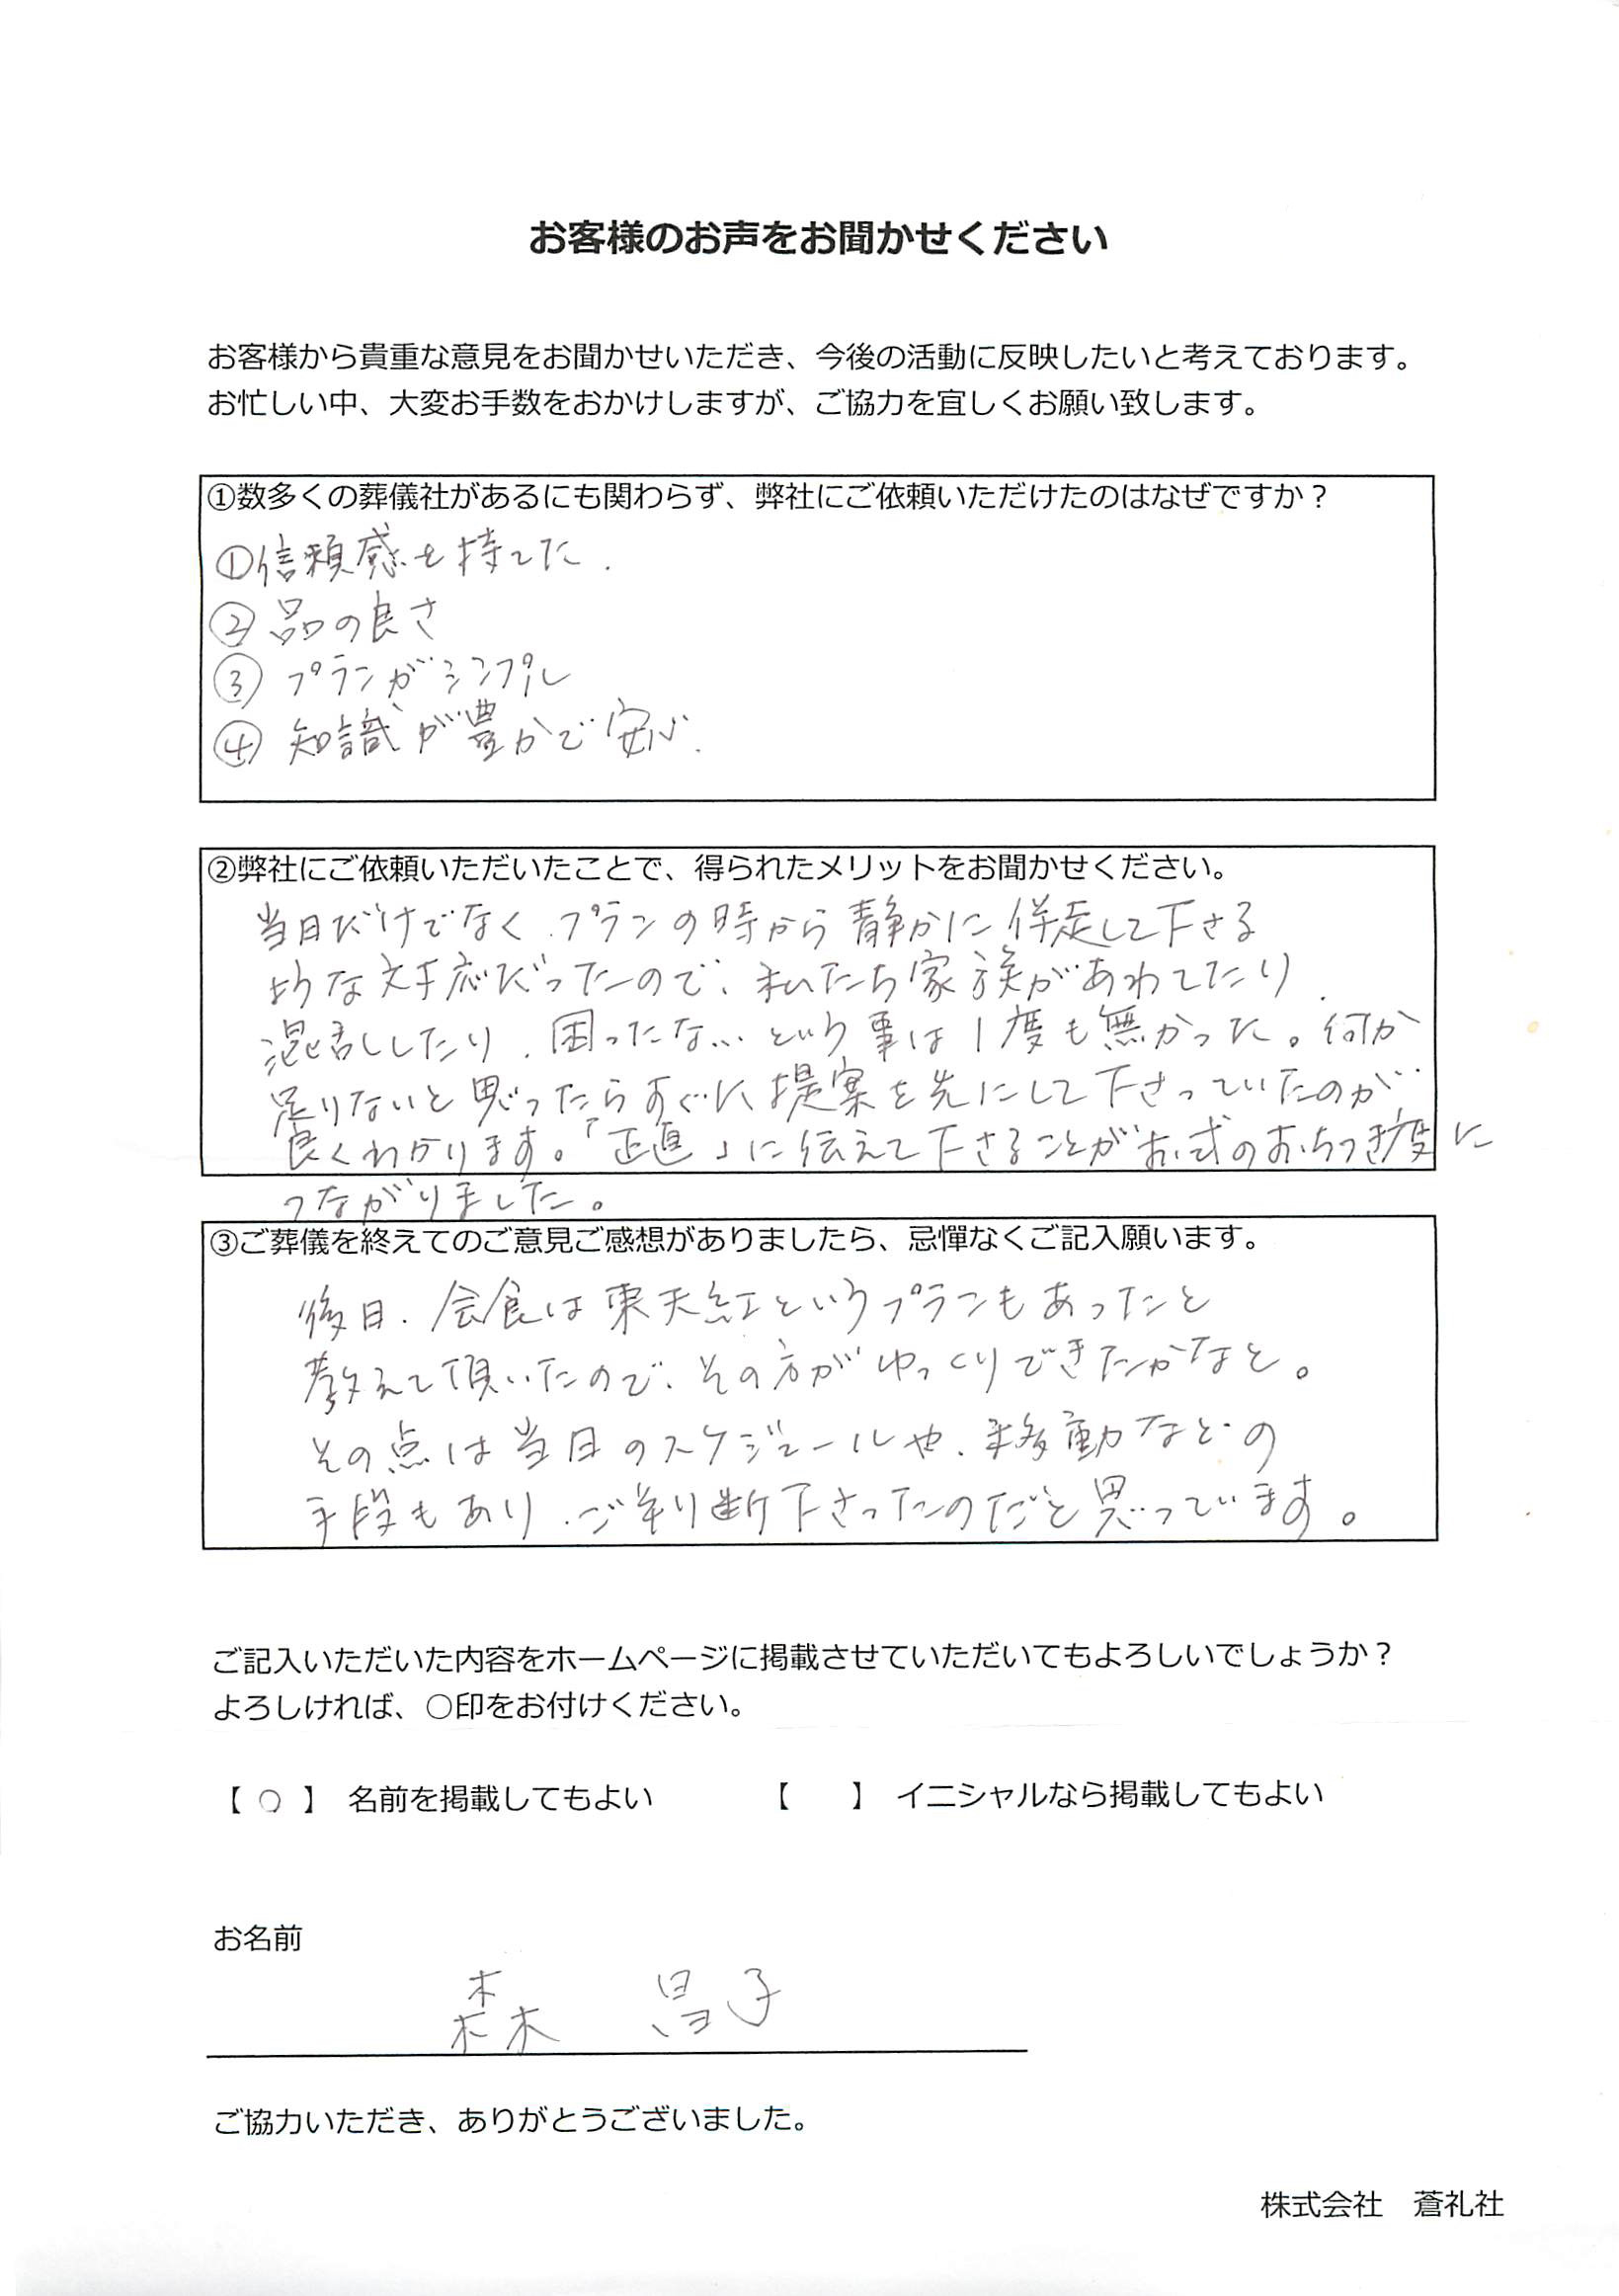 お客様のお声をお聞かせください
お客様から貴重な意見をお聞かせいただき、今後の活動に反映したいと考えております。
お忙しい中、大変お手数をおかけしますが、ご協力を宜しくお願い致します。
①数多くの葬儀社があるにも関わらず、弊社にご依頼いただけたのはなぜですか？
①信頼感を持てた.
②品の良さ
③プランがシンプル
④知識が豊かで安心.
②弊社にご依頼いただいたことで、得られたメリットをお聞かせください。
当日だけでなく、プランの時から静かに併走して下さる
ような対応だったので、私たち家族があわてたり、
混乱したり、困ったな… という事は1度も無かった。何か
足りないと思ったらすぐに提案を先にして下さっていたのが
良くわかります。「正直」に伝えて下さることがお式のおちつき度に
つながりました。
③ご葬儀を終えてのご意見ご感想がありましたら、忌憚なくご記入願います。
後日、会食は東天紅というプランもあったと
教えて頂いたので、その方がゆっくりできたかなと。
その点は当日のスケジュールや、移動などの
手段もあり、ご判断下さったのだと思っています。
ご記入いただいた内容をホームページに掲載させていただいてもよろしいでしょうか？
よろしければ、〇印をお付けください。
【 ○ 】 名前を掲載してもよい 【 】 イニシャルなら掲載してもよい
お名前
森 昌子
ご協力いただき、ありがとうございました。
株式会社 蒼礼社